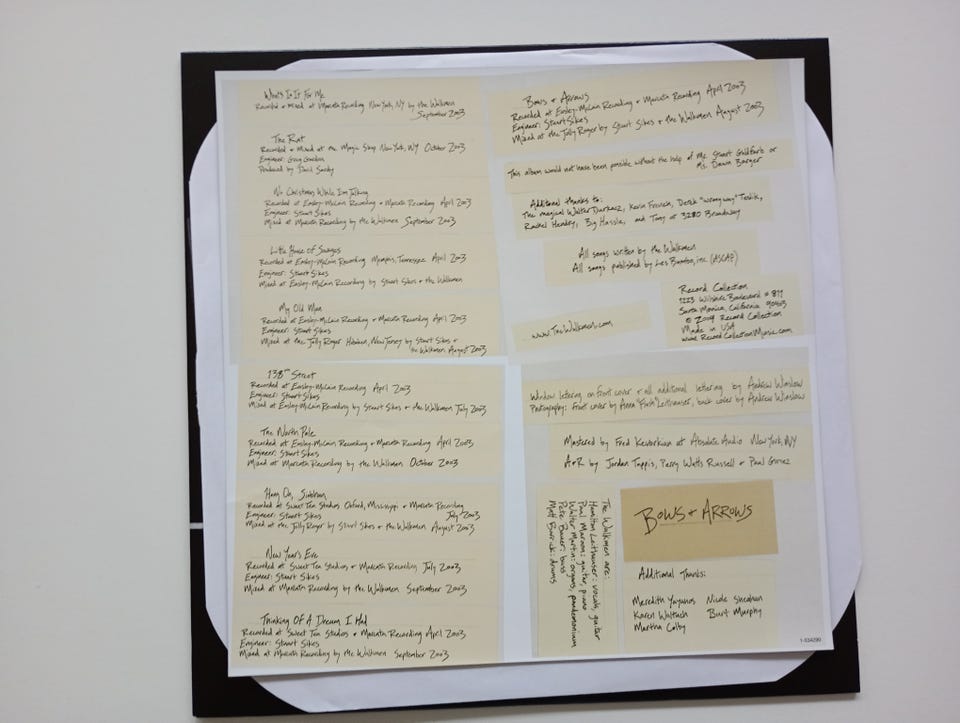 What's In It For Me
Recorded + Mixed at Marcata Recording New York, NY by the Walkmen
September 2003
The Rat
Recorded + Mixed at the Magic Shop New York, NY October 2003
Engineer: Greg Gordon
Produced by David Sardy
No Christmas While I'm Talking
Recorded at Easley-McCain Recording + Marcata Recording April 2003
Engineer: Stuart Sikes
Mixed at Marcata Recording by the Walkmen September 2003
Little House of Savages
Recorded at Easley-McCain Recording Memphis, Tennessee April 2003
Engineer: Stuart Sikes
Mixed at Easley-McCain Recording by Stuart Sikes + the Walkmen
My Old Man
Recorded at Easley-McCain Recording + Marcata Recording April 2003
Engineer: Stuart Sikes
Mixed at the Jolly Roger Hoboken, New Jersey by Stuart Sikes +
the Walkmen August 2003
138th Street
Recorded at Easley-McCain Recording April 2003
Engineer: Stuart Sikes
Mixed at Easley-McCain Recording by Stuart Sikes + the Walkmen July 2003
The North Pole
Recorded at Easley-McCain Recording + Marcata Recording April 2003
Engineer: Stuart Sikes
Mixed at Marcata Recording by the Walkmen October 2003
Hang On, Siobhan
Recorded at Sweet Tea Studios Oxford, Mississippi + Marcata Recording
July 2003
Engineer: Stuart Sikes
Mixed at the Jolly Roger by Stuart Sikes + the Walkmen August 2003
New Year's Eve
Recorded at Sweet Tea Studios + Marcata Recording July 2003
Engineer: Stuart Sikes
Mixed at Marcata Recording by the Walkmen September 2003
Thinking Of A Dream I Had
Recorded at Sweet Tea Studios + Marcata Recording April 2003
Engineer: Stuart Sikes
Mixed at Marcata Recording by the Walkmen September 2003
Bows + Arrows
Recorded at Easley-McCain Recording + Marcata Recording April 2003
Engineer: Stuart Sikes
Mixed at the Jolly Roger by Stuart Sikes + the Walkmen August 2003
This album would not have been possible without the help of Mr. Stuart Goldfarb or
Ms. Dawn Barger
Additional thanks to:
The magical Walter Durkacz, Kevin French, Derek "wrongway" Trulik,
Rachel Hendry, Big Hassle, and Tony at 3280 Broadway
All songs written by the Walkmen
All songs published by Les Bambo, inc. (ASCAP)
www.TheWalkmen.com
Record Collection
1223 Wilshire Boulevard # 811
Santa Monica, California 90403
© 2004 Record Collection
Made in USA
www.RecordCollectionMusic.com
Window lettering on front cover + all additional lettering by Andrew Winslow
Photography: Front cover by Anna "Flash" Leithauser, back cover by Andrew Winslow
Mastered by Fred Kevorkian at Absolute Audio New York, NY
A+R by Jordan Tappis, Perry Watts Russell + Paul Gomez
The Walkmen are:
Hamilton Leithauser: vocals, guitar
Paul Maroon: guitar, piano
Walter Martin: organs, pandemonium
Pete Bauer: bass
Matt Barrick: drums
BOWS + ARROWS
Additional Thanks:
Meredith Nicole Sheahan
Karen Waltuch Burt Murphy
Martha Colby
1-534290